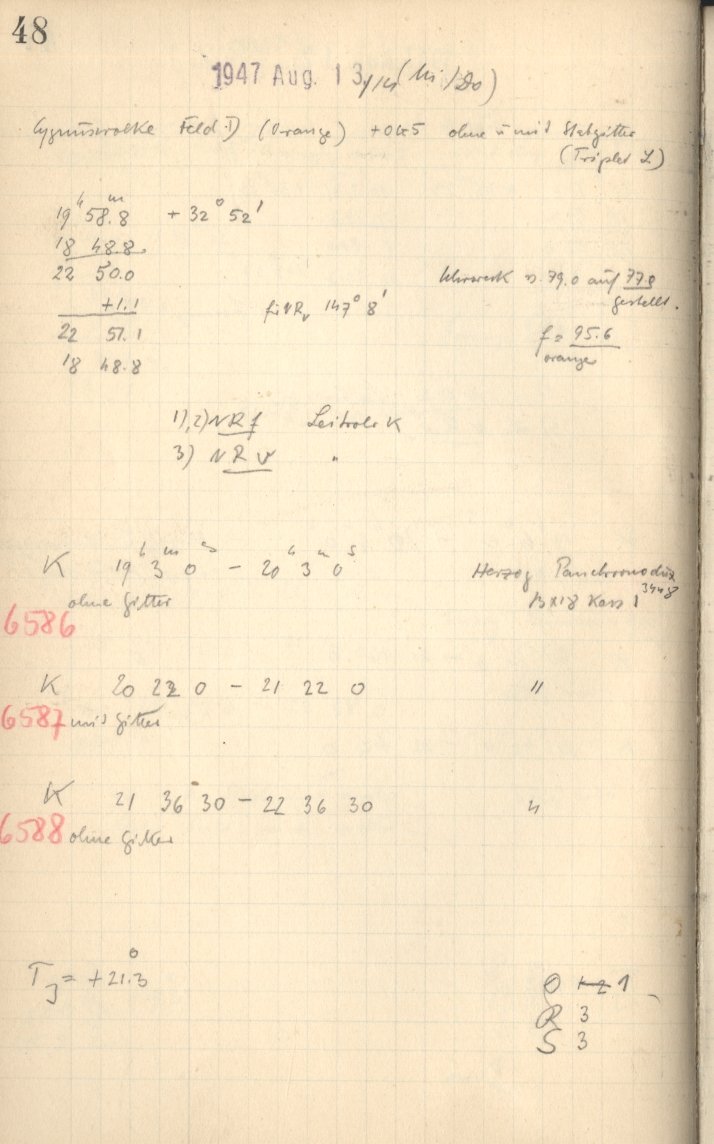 48
1947 Aug. 13/14 (Mi/Do)
Cygnuswolke Feld I) (Orange) ohne u mit Stabgitter
(Triplet Z.)
19h 58.8m + 32° 52'
18 48.8
22 50.0
+1.1
22 51.1
18 48.8
für NRv 147° 8'
Uhrwerk v. 79.0 auf 77.8
gestellt.
f = 95.6
orange
1), 2) NRf Leitrohr K
3) NRv "
K 19h 3m 0s - 20h 3m 0s Herzog
ohne Gitter Kass 1
6586
K 20 22 0 - 21 22 0 "
6587 mit Gitter
K 21 36 30 - 22 36 30 "
6588 ohne Gitter
TJ = +21.3°
1
R 3
S 3